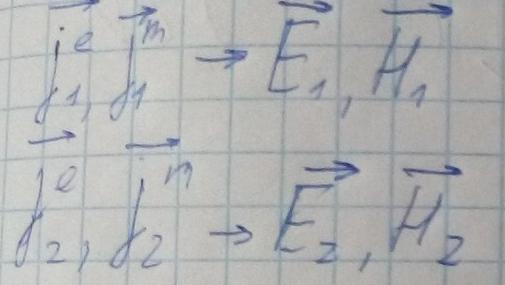 $\vec{j}_1^e, \vec{j}_1^m \rightarrow \vec{E}_1, \vec{H}_1$
$\vec{j}_2^e, \vec{j}_2^m \rightarrow \vec{E}_2, \vec{H}_2$